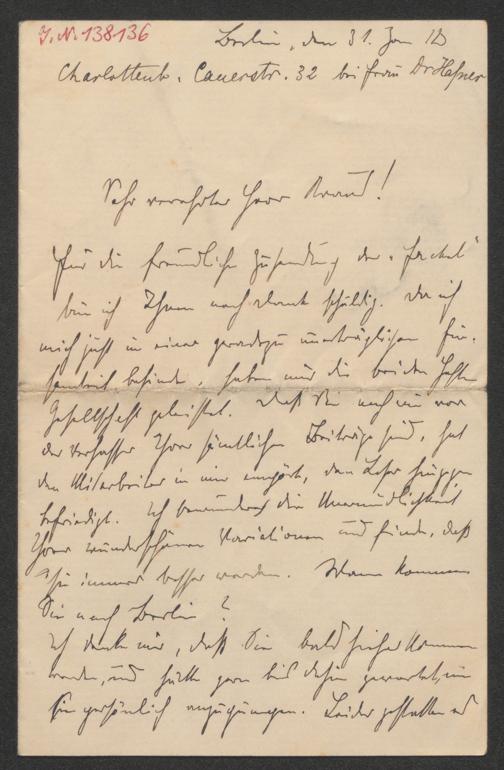 J.N. 138136
Berlin, den 31. Jan 12
Charlottenb. Cauerstr. 32 bei Frau Dr Hafner
Sehr verehrter Herr Kraus!
Für die freundliche Zusendung der „Fackel“
bin ich Ihnen noch Dank schuldig. Da ich
mich jetzt in einer geradezu unerträglichen Ein-
samkeit befinde, haben mir die beiden Hefte
Gesellschaft geleistet. Daß Sie nach wie vor
der Verfasser Ihrer sämtlichen Beiträge sind, hat
den Mitarbeiter in mir empört, den Leser hingegen
befriedigt. Ich bewundere die Unermüdlichkeit
Ihrer wunderschönen Variationen und finde, daß
Sie immer besser werden. Wann kommen
Sie nach Berlin?
Ich denke mir, daß Sie bald hieher kommen
werden, und hätte gern bis dahin gewartet, um
Sie persönlich anzupumpen. Leider gestatten es